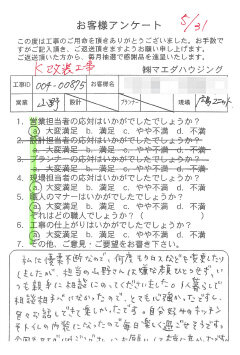 お客様アンケート
5/31
この度は工事のご用命を頂きありがとうございました。お手数で
すがご記入頂き、ご返送頂きますようお願い申し上げます。
ご返送頂いた方から、毎月抽選で感謝品を進呈いたします。
K 改装工事
㈱マエダハウジング
工事ID 004-00875 お客様名
営業 山野 設計 プランナー 現場
1. 営業担当者の応対はいかがでしたでしょうか?
a 大変満足 b. 満足 c. やや不満 d. 不満
2. 設計担当者の応対はいかがでしたでしょうか?
a. 大変満足 b. 満足 c. やや不満 d. 不満
3. プランナーの応対はいかがでしたでしょうか?
a. 大変満足 b. 満足 c. やや不満 d. 不満
4. 現場担当者の応対はいかがでしたでしょうか?
a 大変満足 b. 満足 c. やや不満 d. 不満
5. 職人のマナーはいかがでしたでしょうか?
a 大変満足 b. 満足 c. やや不満 d. 不満
それはどの職人でしょうか?( )
6. 工事の仕上がりはいかがでしたでしょうか?
a 大変満足 b. 満足 c. やや不満 d. 不満
7. その他、ご意見・ご要望をお書き下さい。
私は優柔不断なので、何度もクロスなどを変更したり
しましたが、担当の山野さんは嫌な顔ひとつせず、い
つも親身に相談にのってくださいました。1人暮らしで
相談相手がいなかったので、とても心強かったですし、
色々お話しできて楽しかったです。自分好みのキッチン
やトイレの内装になったので毎日楽しく過ごせそうです。